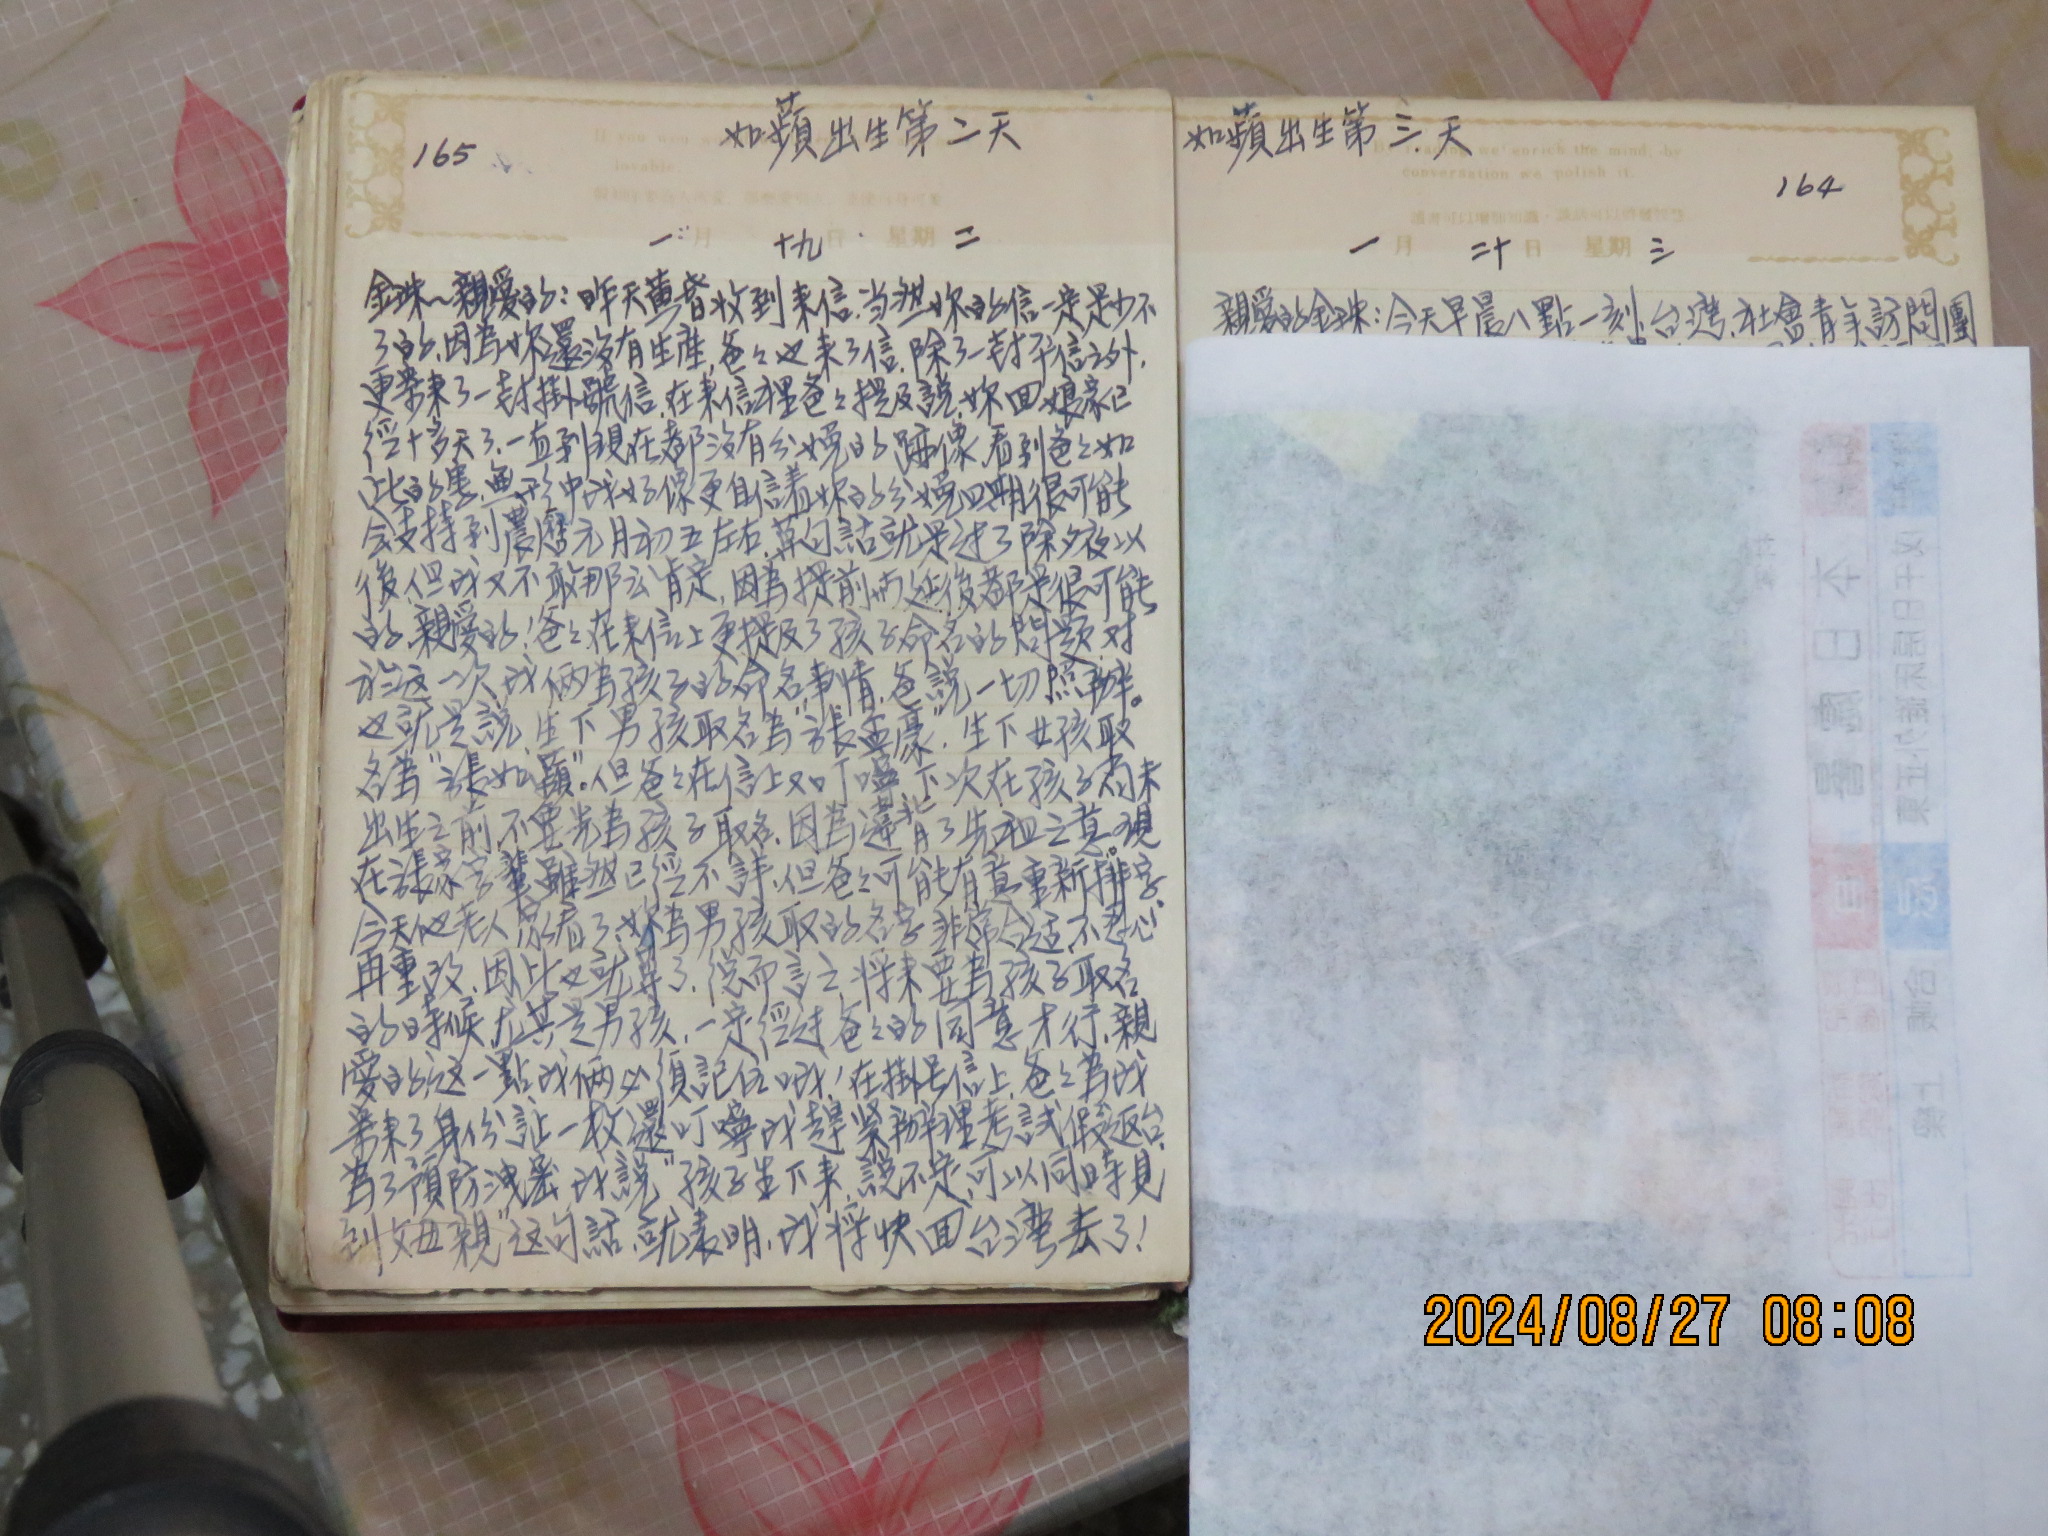 如蘋出生第二天
165
一月 十九日 星期二
金珠~親愛的:昨天黃昏收到來信,當然妳的信一定是少不
了的,因為妳還沒有生產,爸々也來了信,除了一封平信之外,
更寄來了一封掛號信,在來信裡爸々提及說,妳回娘家已
經十多天了,一直到現在都沒有分娩的跡像,看到爸々如
此的說,無形中我好像更自信著妳的分娩日期很可能
會支持到農曆元月初五左右,算句話就是過了除夕夜以
後,但我又不敢那么肯定,因為提前或延後都是很可能
的,親愛的!爸々在來信上更提及了孩子命名的問題,對
於這一次,我倆為孩子的命名事情,爸說一切照辦。
也就是說,生下男孩取名為"張孟豪",生下女孩取
名為"張如蘋"。但爸々在信上又叮嚀下次在孩子尚未
出生之前不要先為孩子取名,因為違背了先祖之意。現
在張家字輩雖然已經不詳,但爸々可能有意重新排字,
今天他老人家看了妳為男孩取的名字非常合适,不忍心
再重改,因此也就算了,總而言之,將來要為孩子取名
的時候,尤其是男孩,一定經過爸々的同意才行,親
愛的,这一點我倆必須記住哦!在掛号信上,爸々為我
寄來了身份証一枚,還叮嚀我趕緊辦理考試假返台,
為了預防洩密,我說"孩子生下來,說不定可以同時見
到父母親"这句話,就表明,我將快回台灣去了!
如蘋出生第三天
164
一月 二十日 星期三
親愛的金珠:今天早晨八點一刻,台灣社會青年訪問團
2024/08/27 08:08